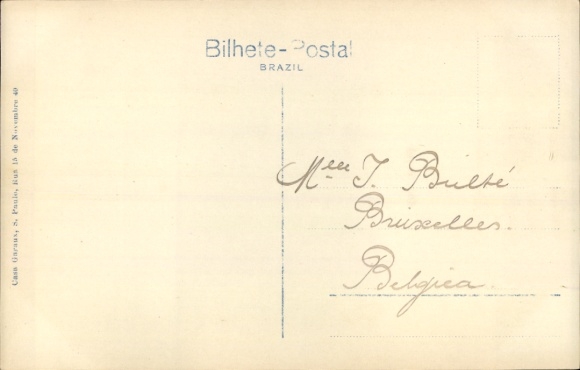 Bilhete-Postal
BRAZIL
Casa Garaux, S. Paulo, Rua 15 de Novembre 40
Mlle J. Bulté
Bruxelles.
Belgica